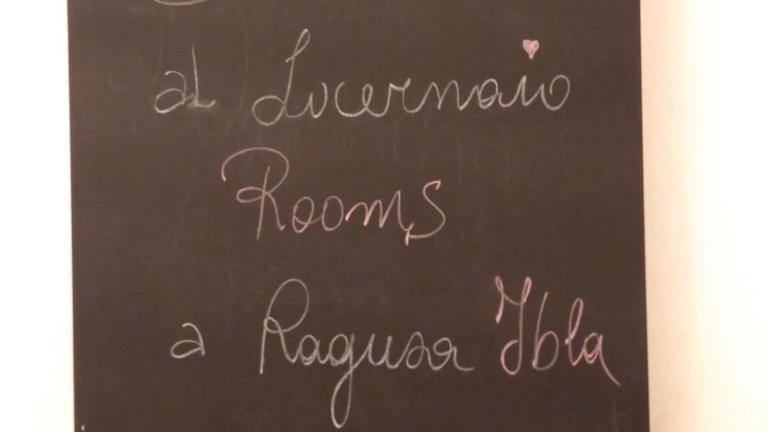 al Lucernaio
Rooms
a Ragusa Ibla